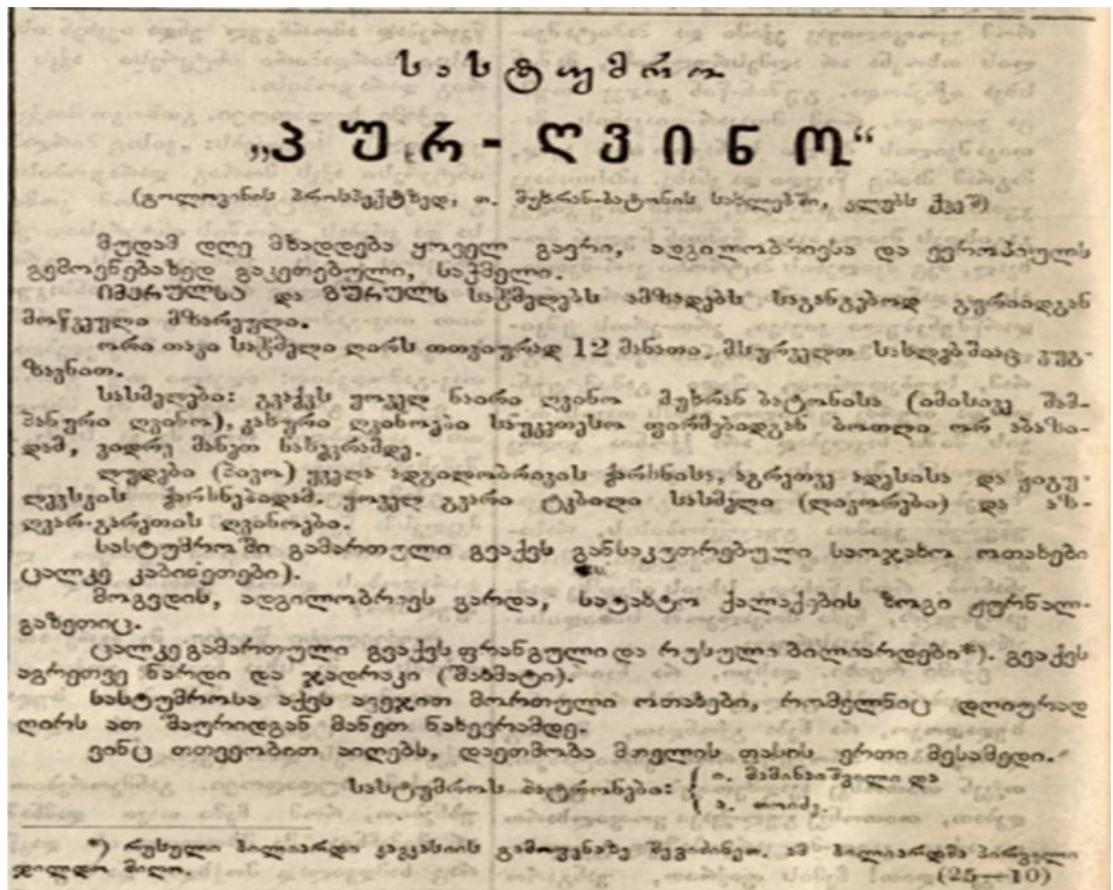 სასტუმრო
„პურ-ღვინო“
(გოლოვინის პროსპექტზედ, თ. მუხრან-ბატონის სახლებში, კლუბს ქვეშ)
მუდამ დღე მზადდება ყოველ გვარი, ადგილობრივსა და ევროპიულს
გემოვნებაზედ გაკეთებული, საჭმელი.
იმერულსა და გურულს საჭმელებს ამზადებს საგანგებოდ გურიიდგან
მოწვეული მზარეული.
ორი თავი საჭმელი ღირს თთვიურად 12 მანათი, მსურველთ სახლებშიაც ვუგ-
ზავნით.
სასმელები: გვაქვს ყოველ ნაირი ღვინო მუხრან ბატონისა (იმისივე შამ-
პანური ღვინო), კახური ღვინოები საუკეთესო ფირმებიდგან ბოთლი ორ აბაზი-
დამ, ვიდრე მანეთ ნახევრამდე.
ლუდები (პივო) ყველა ადგილობრივის ქარხნისა, აგრეთვე ადესისა და ჟიგუ-
ლევსკის ქარხნებიდამ. ყოველ გვარი ტკბილი სასმელი (ლიქორები) და აზ-
ღვარ-გარეთის ღვინოები.
სასტუმროში გამართული გვაქვს განსაკუთრებული საოჯახო ოთახები
ცალკე კაბინეთები).
მოგვდის, ადგილობრივს გარდა, სატახტო ქალაქების ზოგი ჟურნალ-
გაზეთიც.
ცალკე გამართული გვაქვს ფრანგული და რუსული ბილიარდები*). გვაქვს
აგრეთვე ნარდი და ჯადრაკი (შახმატი).
სასტუმროსა აქვს ავეჯით მორთული ოთახები, რომელნიც დღიურად
ღირს ათ შაურიდგან მანეთ ნახევრამდე.
ვინც თთვეობით აიღებს, დაეთმობა მთელის ფასის ერთი მესამედი.
სასტუმროს პატრონები: { ი. მამინაიშვილი და
ა. თოიძე.
*) რუსული ბილიარდი კავკასიის გამოფენაზე შევიძინეთ. ამ ბილიარდმა პირველი
ჯილდო მიიღო. (25—10)